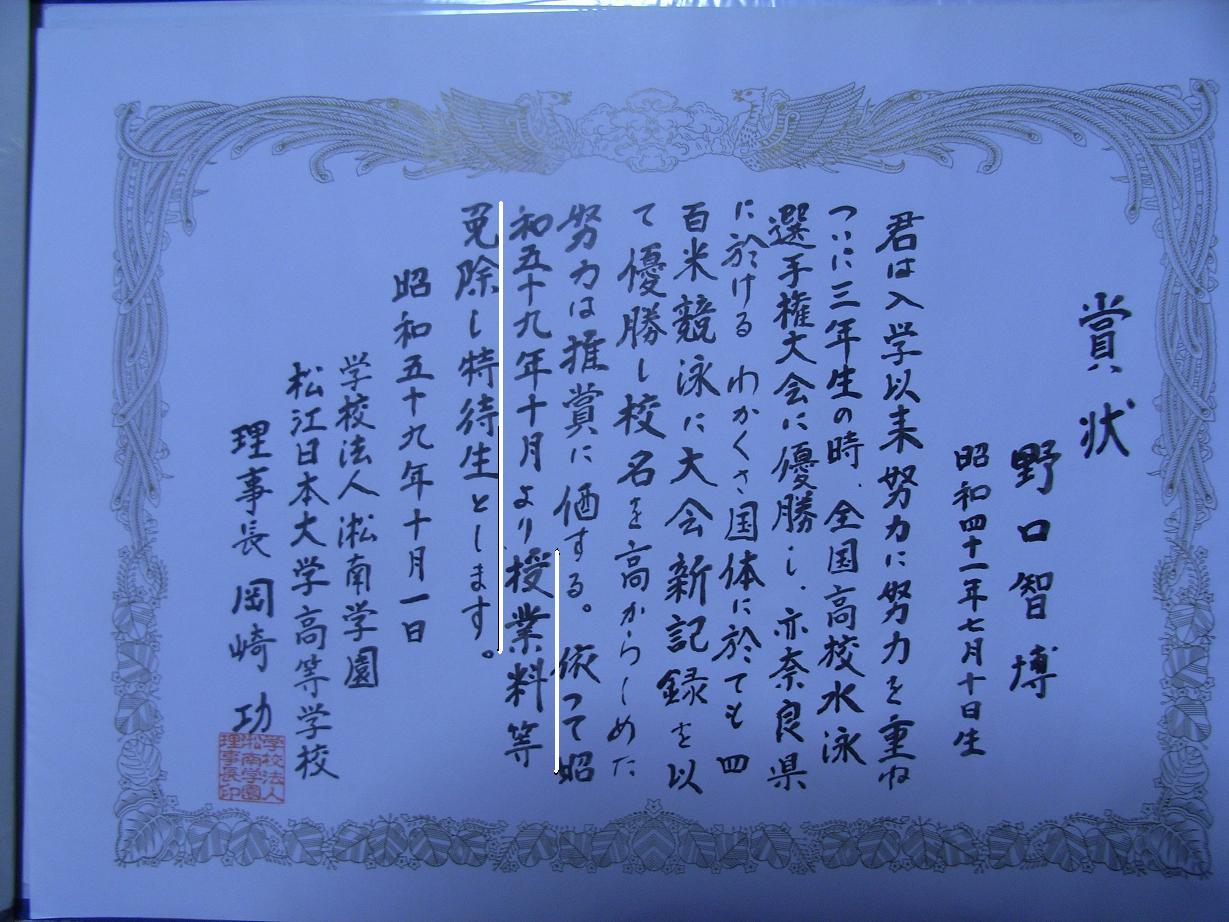 賞状
野口智博
昭和四十一年七月十日生
君は入学以来努力に努力を重ね
ついに三年生の時、全国高校水泳
選手権大会に優勝し、亦奈良県
に於ける わかくさ国体に於ても四
百米競泳に大会新記録を以
て優勝し校名を高からしめた
努力は推賞に価する。依つて昭
和五十九年十月より授業料等
免除し特待生とします。
昭和五十九年十月一日
学校法人淞南学園
松江日本大学高等学校
理事長 岡崎功
学校法人
淞南学園
理事長印